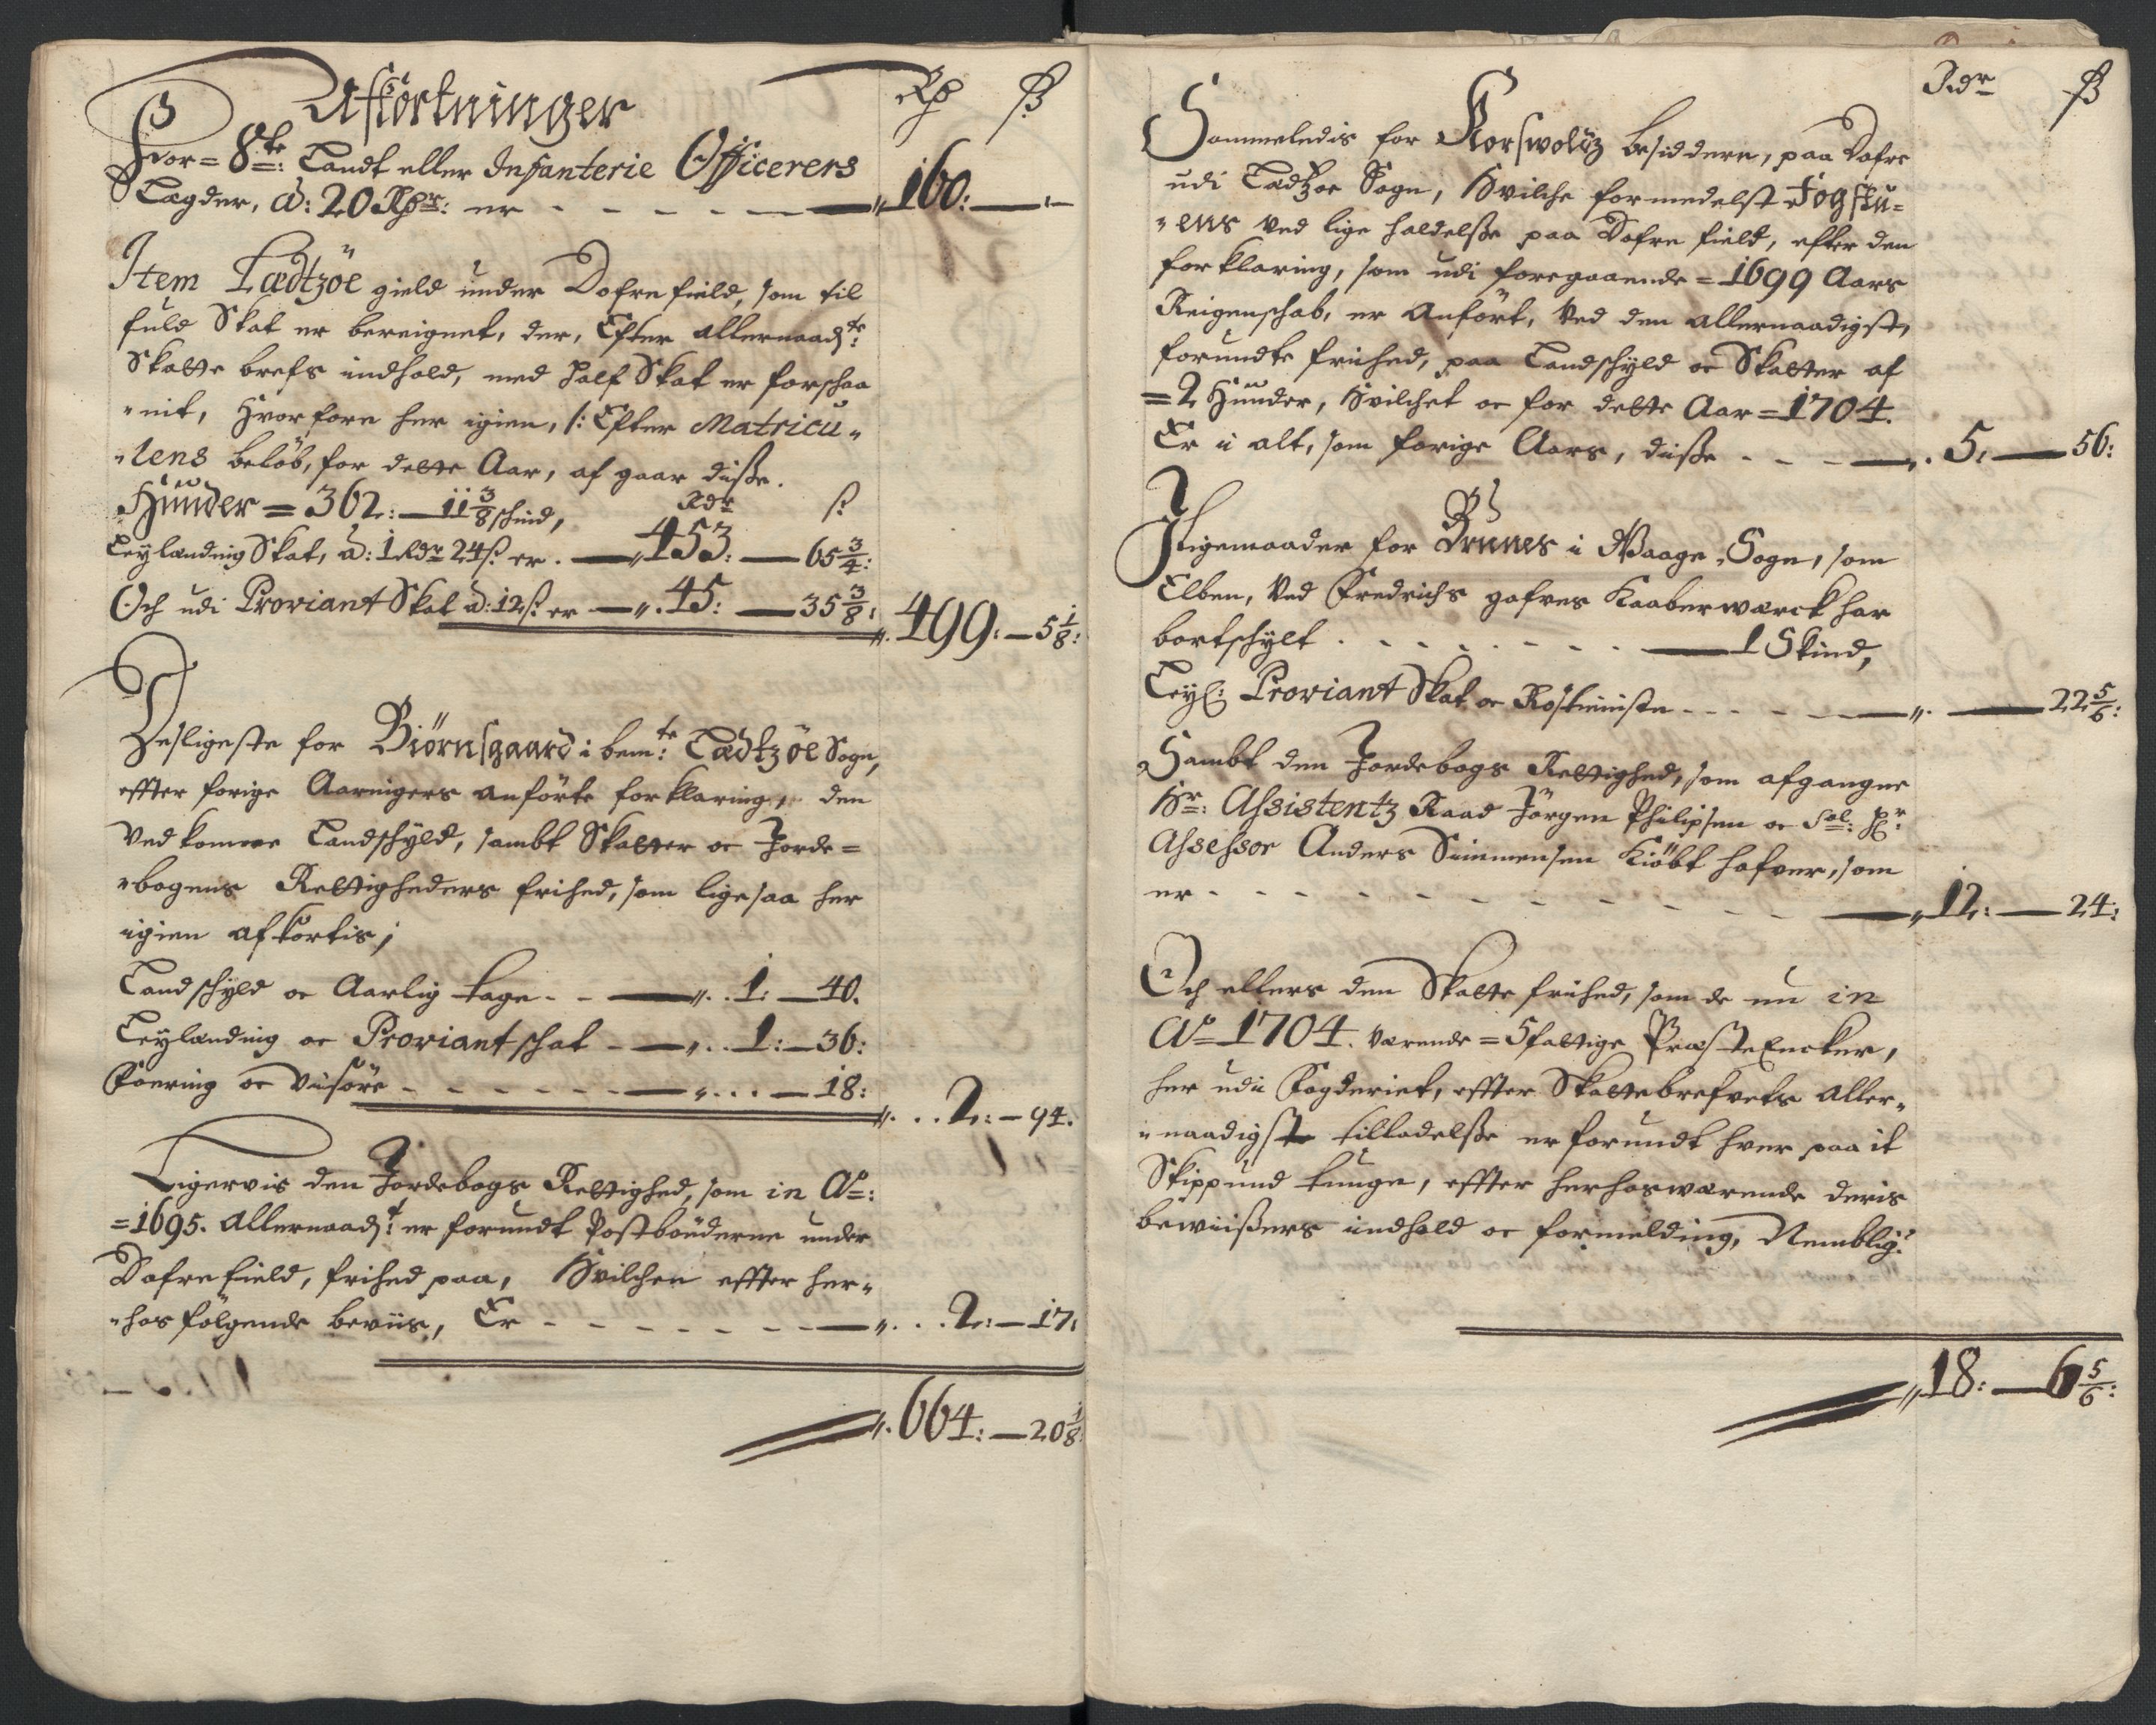 Afkortninger
Rd ß
For = 8te: Landt eller Infanterie Officerers
Lægder, à: 20 Rdr: er - - - - - 160: — : —
Item Lædtzöe gield under Dofrefield, som til
fuld Skat er bereignet, der, Efter allernaadste:
Skatte brefs indhold, med half Skat er forschaa
"nit, Hvorfore her igien, /: Efter Matricu"
"lens beløb, for dette Aar, af gaar disse.
Hünder = 362: — 11 3/8 schind, Rdr ß
Leylænding Skat, à: 1 Rdr 24 ß er . — 453: — 65 3/4:
Och udi Proviant Skat à: 12 ß er — 45: — 35 3/8: 499: — 5 1/8:
Desligeste for Biörnsgaard i bemte: Lædtzöe Sogn,
effter forige Aaringers anførte forklaring, den
Vedkomne Landschyld, sambt Skatter oc Jorde=
"bogens Rettigheders frihed, som lige saa her
igien afkortis;
Landschyld oc Aarlig tage - - — 1: — 40.
Leylænding oc Proviant schat - — 1: — 36:
Foering oc Visøre - - - - - — 18: 2: — 94.
Ligervis den Jordebogs Rettighed, som in Ao:
= 1695. Allernaadt: er forundt Postbönderne under
Dofrefield, frihed paa, Hvilchen effter her"
"hos følgende beviis, Er - - - - - - - — 2: — 17:
664: — 20 1/8
Rdr ß
Sammeledis for Korswolds besiddere, paa Dofre
udi Lædtzöe Sogn, Hvilche formedelst Fogstu=
"ens Ved lige holdelsse paa Dofre field, efter den
forklaring, som udi foregaaende = 1699 Aars
Reigenschab, er Anført, Ved den allernaadigst,
forundte friehed, paa Landschyld oc Skatter af
= 2 Hünder, Hvilchet oc for dette Aar = 1704.
Er i alt, som forige Aars, disse - - - — 5: — 56:
Ligemaader for Brunes i Waage Sogn, som
Elben, Ved Fredrichs gafves Kaaberwærck har
bortschylt . - - . - - - . — 1 Skind,
Leyl: Proviant Skat oc Rostieniste - - - - — 22 5/6:
Sambt den Jordebogs Rettighed, som afgangne
Hr: Assistentz Raad Jörgen Philipsen oc Sal: Hr:
Assessor Anders Simmensen Kiöbt hafver, som
er - - - - - - - - - - - - — 12: — 24:
Och ellers den Skatte friehed, som de nu in
Ao 1704. værende = 5 fattige Præste Encker,
her udi Fogderiet, effter Skattebrefvets Aller"
"naadigste tilladelsse er forundt hver paa it
Skippund tunge, effter herhosværende deris
bewiißers indhold oc formelding, Nemblig:
18: — 6 5/6: